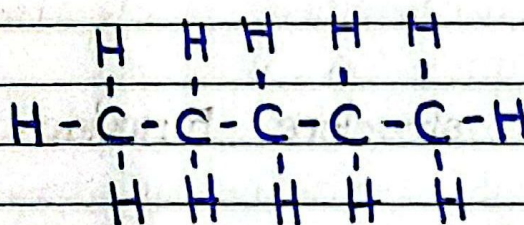 H H H H H
H-C-C-C-C-C-H
H H H H H